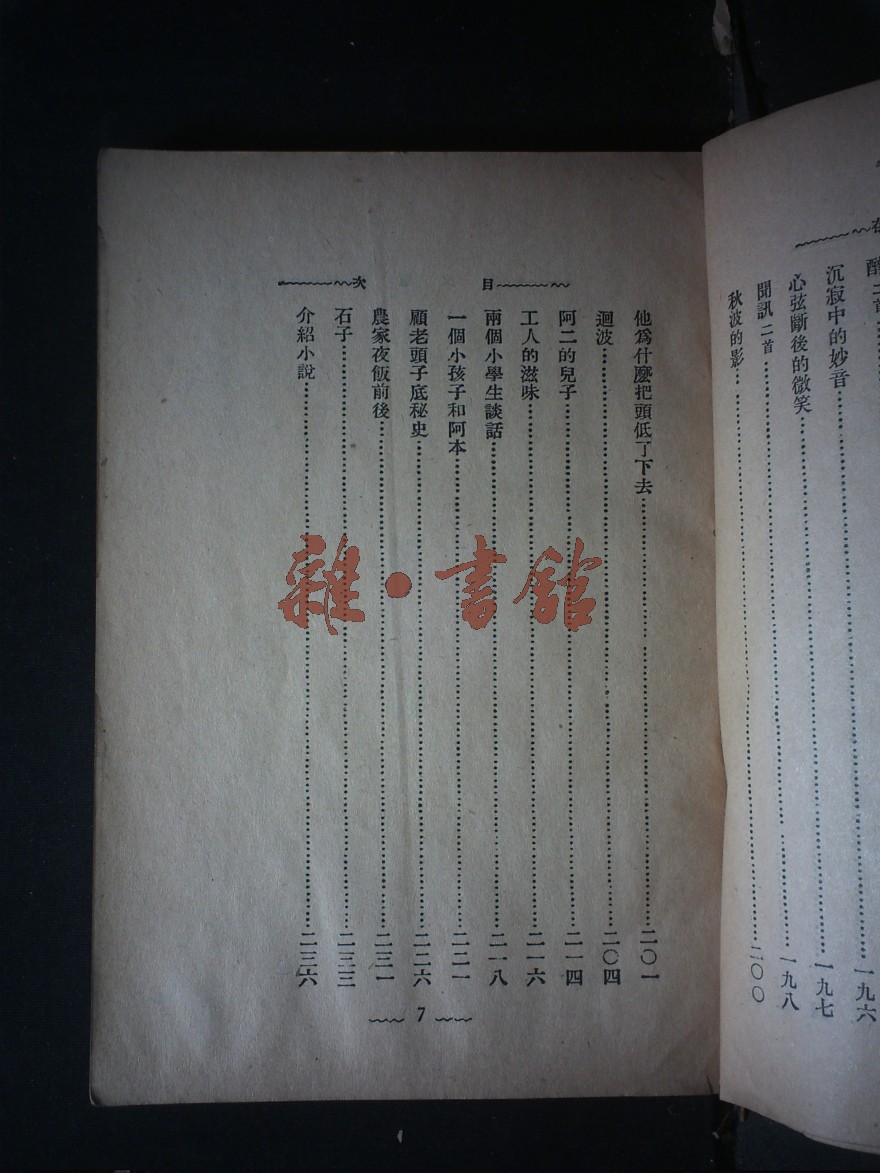 沉寂中的妙音……一九七
心弦斷後的微笑……一九八
聞訊二首
秋波的影……二〇〇
一九六
目次
他爲什麼把頭低了下去……二〇一
迴波……二〇四
阿二的兒子……二一四
工人的滋味……二一六
兩個小學生談話……二一八
一個小孩子和阿本……二二一
顧老頭子底秘史……二二六
農家夜飯前後……二三一
石子……二三三
介紹小說……二三六
7
雜·書館